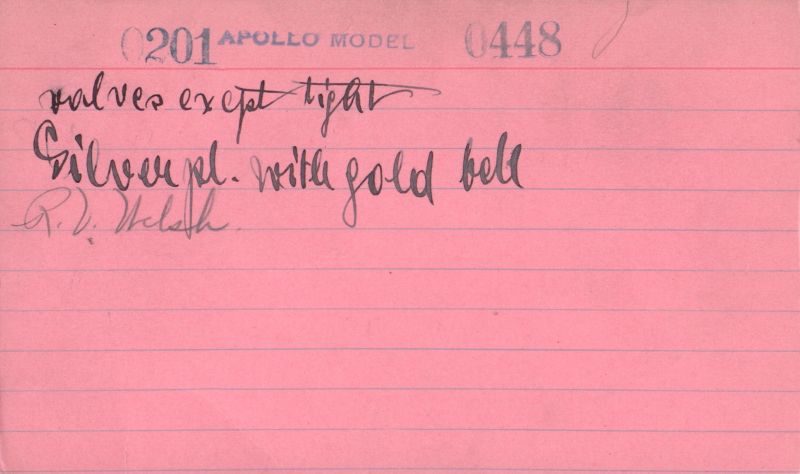 0201 APOLLO MODEL 0448
valves exept tight
Silver pl. with gold bell
R. V. Welsh.